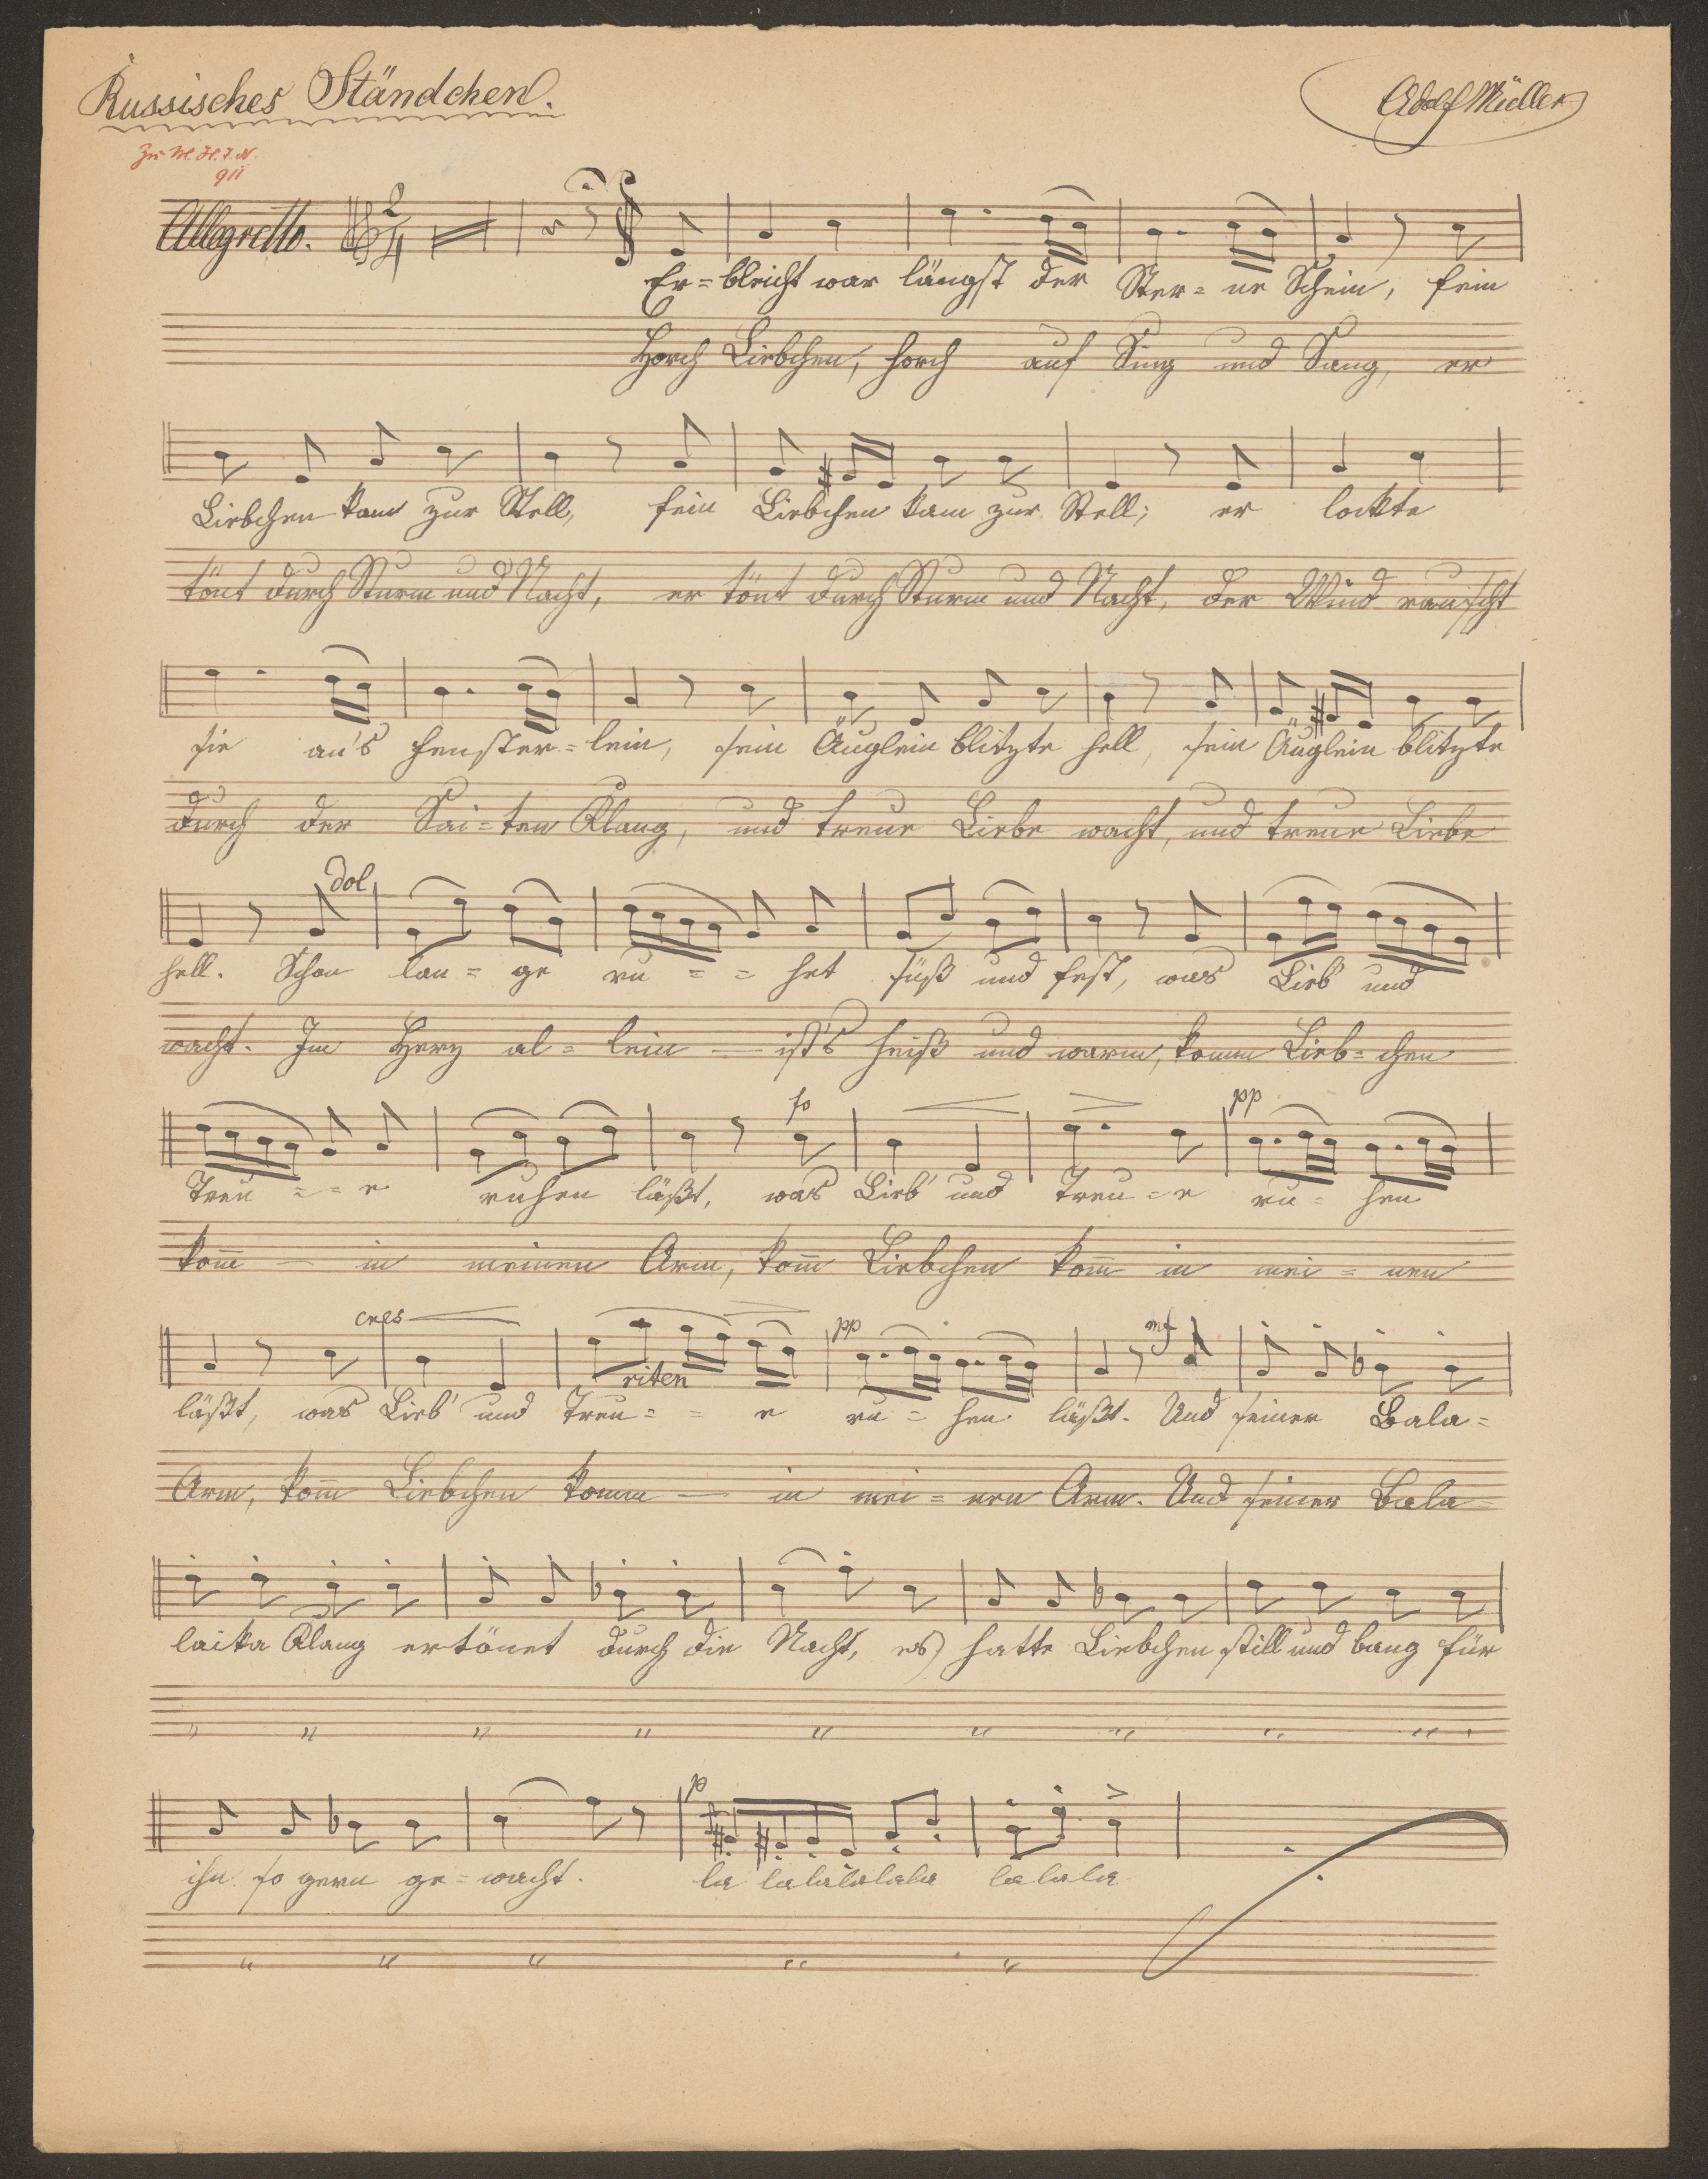 Russisches Ständchen.
Adolf Müller
911
Allegretto. 2/4
Er=bleicht war längst der Ster=ne Schein, fein
Horch Liebchen, horch auf Sing und Sang, er
Liebchen kam zur Stell, fein Liebchen kam zur Stell; er lockte
tönt durch Sturm und Nacht, er tönt durch Sturm und Nacht, der Wind rauscht
sie an's Fenster=lein, sein Äuglein blitzte hell, sein Äuglein blitzte
durch der Sai=ten Klang, und treue Liebe wacht, und treue Liebe
dol
hell. Schon lan=ge ru==het süß und fest, was Lieb' und
wacht. Im Herz al=lein — ist's heiß und warm, komm Lieb=chen
fo
pp
Treu==e ruhen läßt, was Lieb' und Treu=e ru=hen
kom̄ — in meinen Arm, kom̄ Liebchen kom̄ in mei=nen
cres
riten
pp
mf
läßt, was Lieb' und Treu==e ru=hen läßt. Und seiner Bala=
Arm, kom̄ Liebchen komm — in mei=nen Arm. Und seiner Bala=
laika Klang ertönet durch die Nacht, es hatte Liebchen still und bang für
" " " " " " " " "
p
ihn so gern ge=wacht. la la la la la la la la la
" " " " "